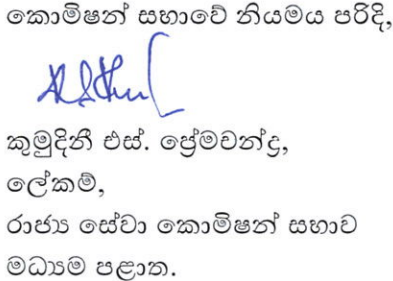 කොමිෂන් සභාවේ නියමය පරිදි,
කුමුදිනී එස්. ප්‍රේමචන්ද්‍ර,
ලේකම්,
රාජ්‍ය සේවා කොමිෂන් සභාව
මධ්‍යම පළාත.